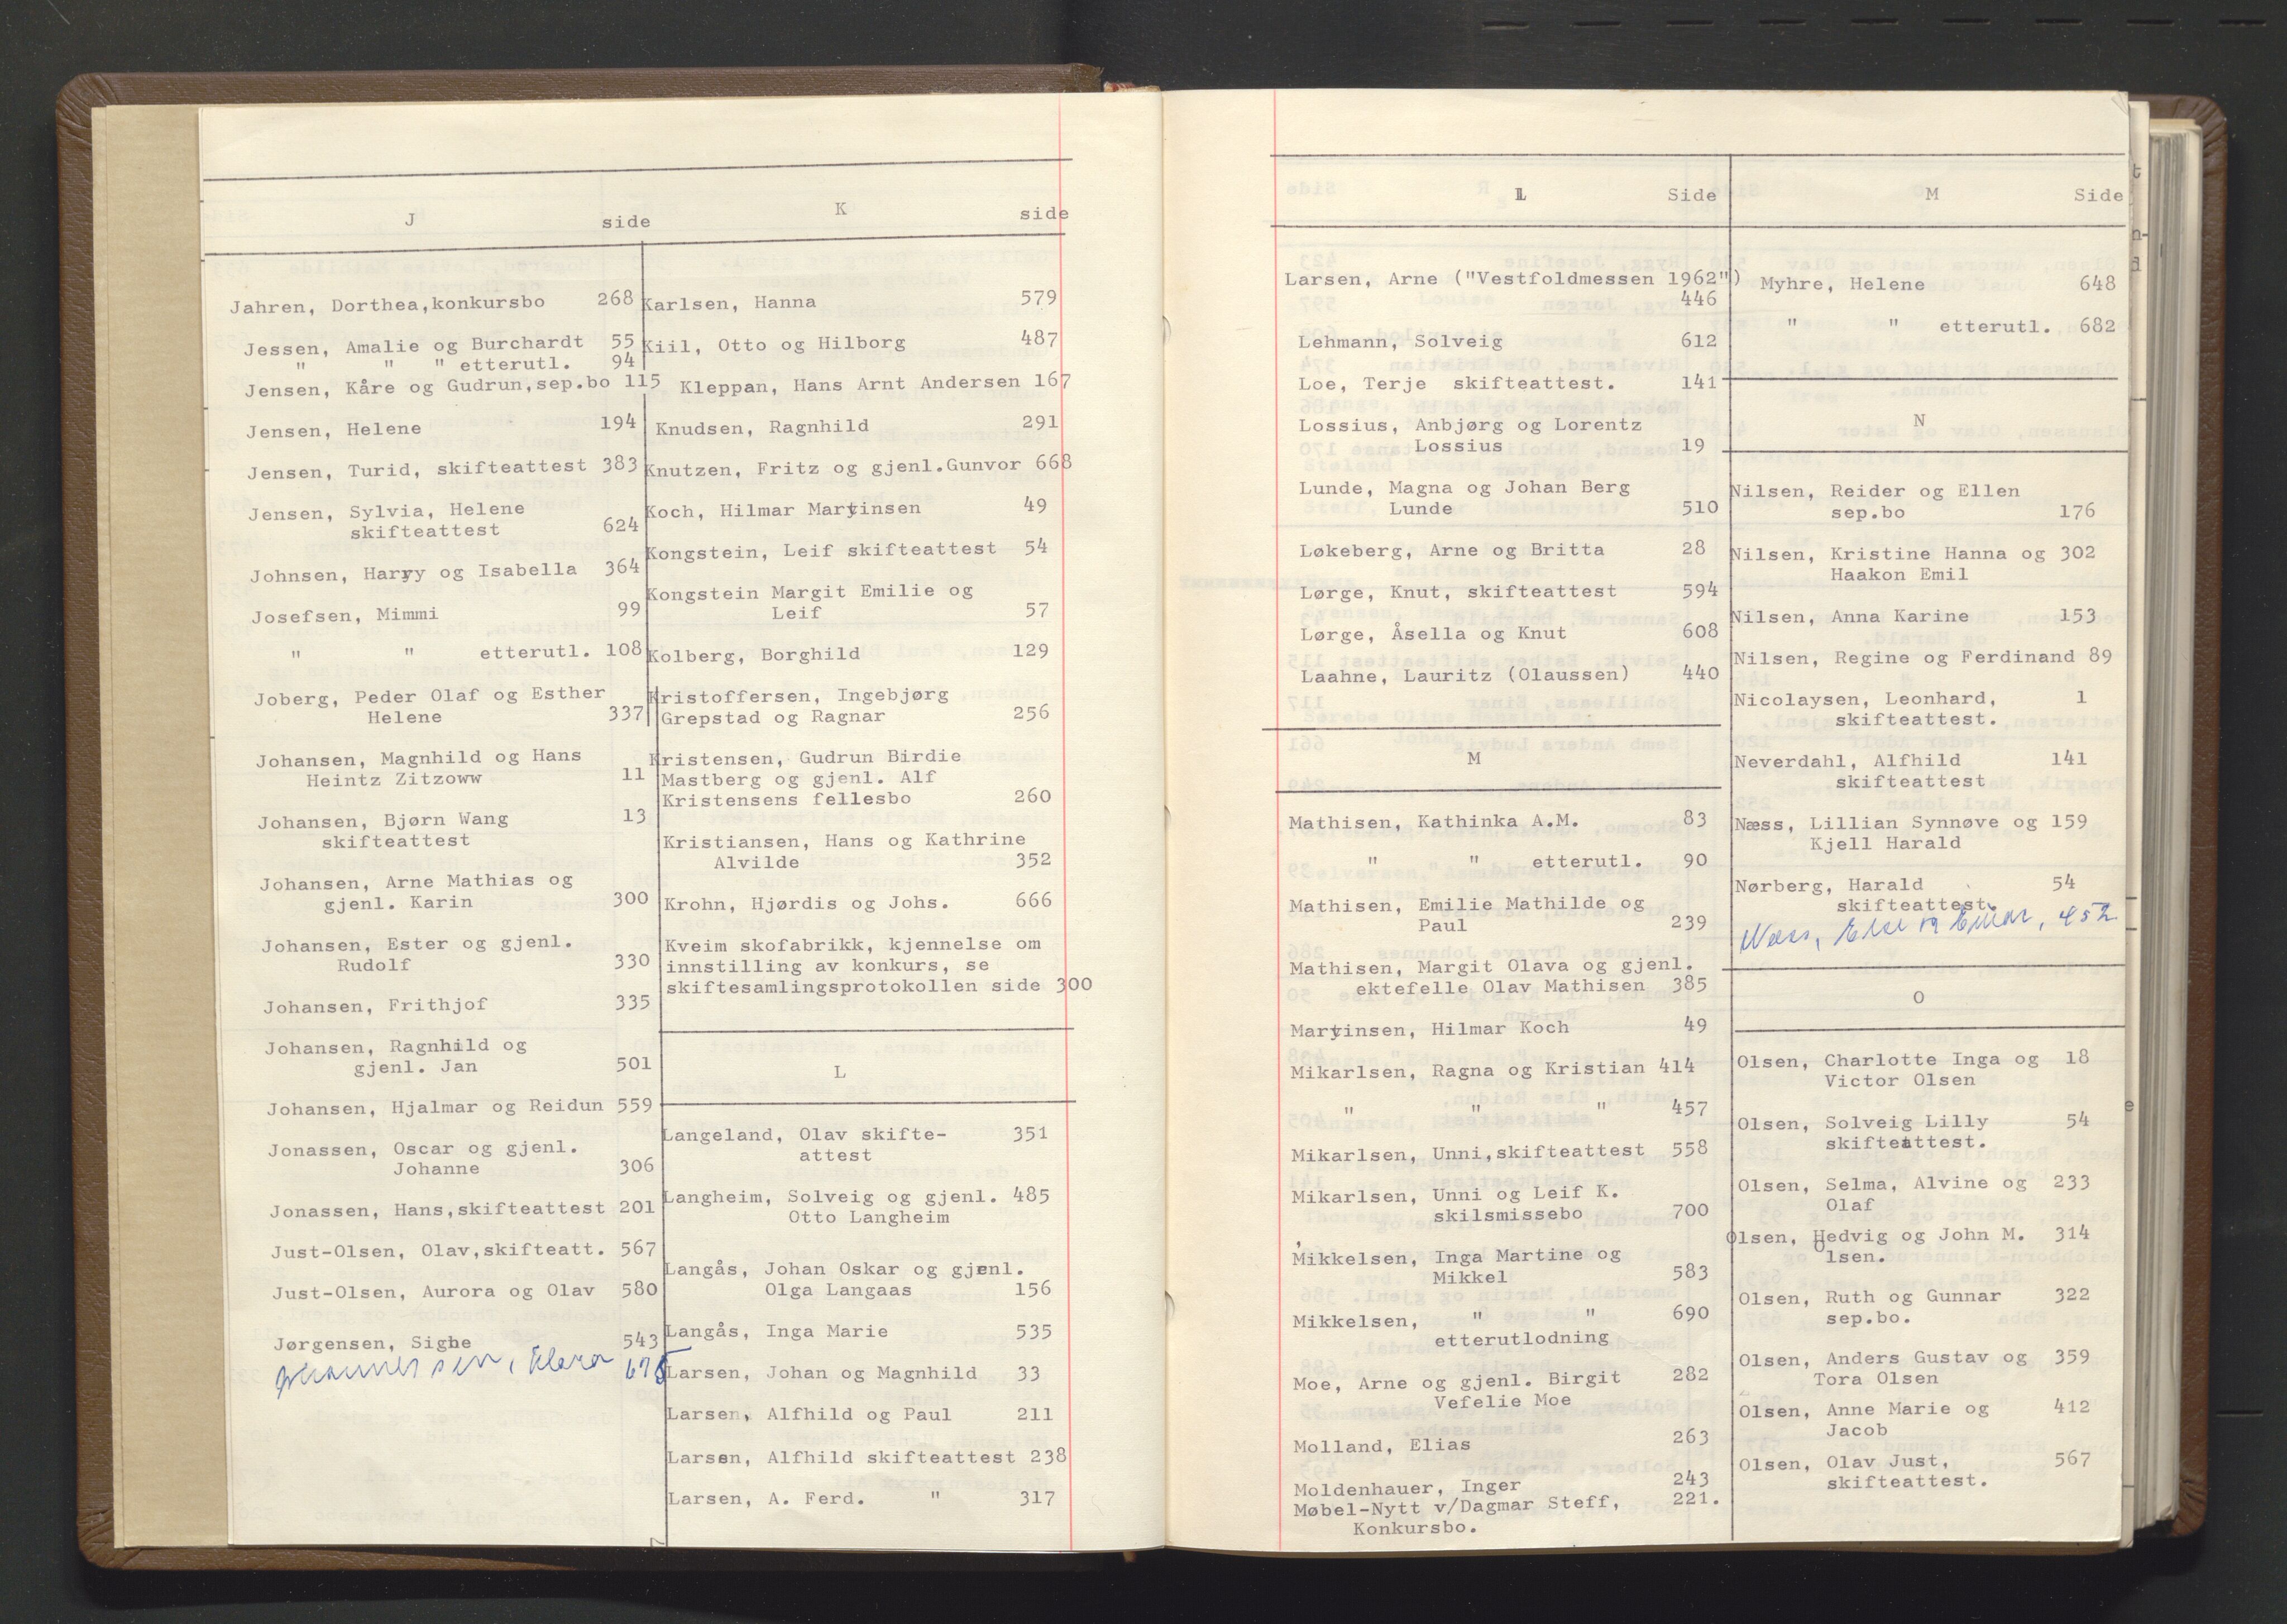 J side
Jahren, Dorthea,konkursbo 268
Jessen, Amalie og Burchardt 55
" " " etterutl. 94
Jensen, Kåre og Gudrun,sep.bo 115
Jensen, Helene 194
Jensen, Turid, skifteattest 383
Jensen, Sylvia, Helene
skifteattest 624
Johnsen, Harry og Isabella 364
Josefsen, Mimmi 99
" " etterutl. 108
Joberg, Peder Olaf og Esther
Helene 337
Johansen, Magnhild og Hans
Heintz Zitzoww 11
Johansen, Bjørn Wang 13
skifteattest
Johansen, Arne Mathias og
gjenl. Karin 300
Johansen, Ester og gjenl.
Rudolf 330
Johansen, Frithjof 335
Johansen, Ragnhild og
gjenl. Jan 501
Johansen, Hjalmar og Reidun 559
Jonassen, Oscar og gjenl.
Johanne 306
Jonassen, Hans,skifteattest 201
Just-Olsen, Olav,skifteatt. 567
Just-Olsen, Aurora og Olav 580
Jørgensen, Signe 543
Johannessen, Klara
K side
Karlsen, Hanna 579
Kiil, Otto og Hilborg 487
Kleppan, Hans Arnt Andersen 167
Knudsen, Ragnhild 291
Knutzen, Fritz og gjenl.Gunvor 668
Koch, Hilmar Martinsen 49
Kongstein, Leif skifteattest 54
Kongstein Margit Emilie og
Leif 57
Kolberg, Borghild 129
Kristoffersen, Ingebjørg
Grepstad og Ragnar 256
Kristensen, Gudrun Birdie
Mastberg og gjenl. Alf
Kristensens fellesbo 260
Kristiansen, Hans og Kathrine
Alvilde 352
Krohn, Hjørdis og Johs. 666
Kveim skofabrikk, kjennelse om
innstilling av konkurs, se
skiftesamlingsprotokollen side 300
L
Langeland, Olav skifte- 351
attest
Langheim, Solveig og gjenl. 485
Otto Langheim
Langås, Johan Oskar og gjenl.
Olga Langaas 156
Langås, Inga Marie 535
Larsen, Johan og Magnhild 33
Larsen, Alfhild og Paul 211
Larsen, Alfhild skifteattest 238
Larsen, A. Ferd. " 317
L Side
Larsen, Arne ("Vestfoldmessen 1962")
446
Lehmann, Solveig 612
Loe, Terje skifteattest. 141
Lossius, Anbjørg og Lorentz
Lossius 19
Lunde, Magna og Johan Berg
Lunde 510
Løkeberg, Arne og Britta 28
Lørge, Knut, skifteattest 594
Lørge, Åsella og Knut 608
Laahne, Lauritz (Olaussen) 440
M
Mathisen, Kathinka A.M. 83
" " etterutl. 90
Mathisen, Emilie Mathilde og
Paul 239
Mathisen, Margit Olava og gjenl.
ektefelle Olav Mathisen 385
Martinsen, Hilmar Koch 49
Mikarlsen, Ragna og Kristian 414
" " " 457
Mikarlsen, Unni,skifteattest 558
Mikarlsen, Unni og Leif K.
skilsmissebo 700
Mikkelsen, Inga Martine og
Mikkel 583
Mikkelsen, " " 690
etterutlodning
Moe, Arne og gjenl. Birgit 282
Vefelie Moe
Molland, Elias 263
Moldenhauer, Inger 243
Møbel-Nytt v/Dagmar Steff, 221.
Konkursbo.
M Side
Myhre, Helene 648
" " etterutl. 682
N
Nilsen, Reider og Ellen
sep.bo 176
Nilsen, Kristine Hanna og 302
Haakon Emil
Nilsen, Anna Karine 153
Nilsen, Regine og Ferdinand 89
Nicolaysen, Leonhard, 1
skifteattest.
Neverdahl, Alfhild 141
skifteattest
Næss, Lillian Synnøve og 159
Kjell Harald
Nørberg, Harald 54
skifteattest.
Næss, Else og Einar, 452
O
Olsen, Charlotte Inga og 18
Victor Olsen
Olsen, Solveig Lilly 54
skifteattest.
Olsen, Selma, Alvine og 233
Olaf
Olsen, Hedvig og John M. 314
Olsen.
Olsen, Ruth og Gunnar 322
sep.bo.
Olsen, Anders Gustav og 359
Tora Olsen
Olsen, Anne Marie og 412
Jacob
Olsen, Olav Just, 567
skifteattest.